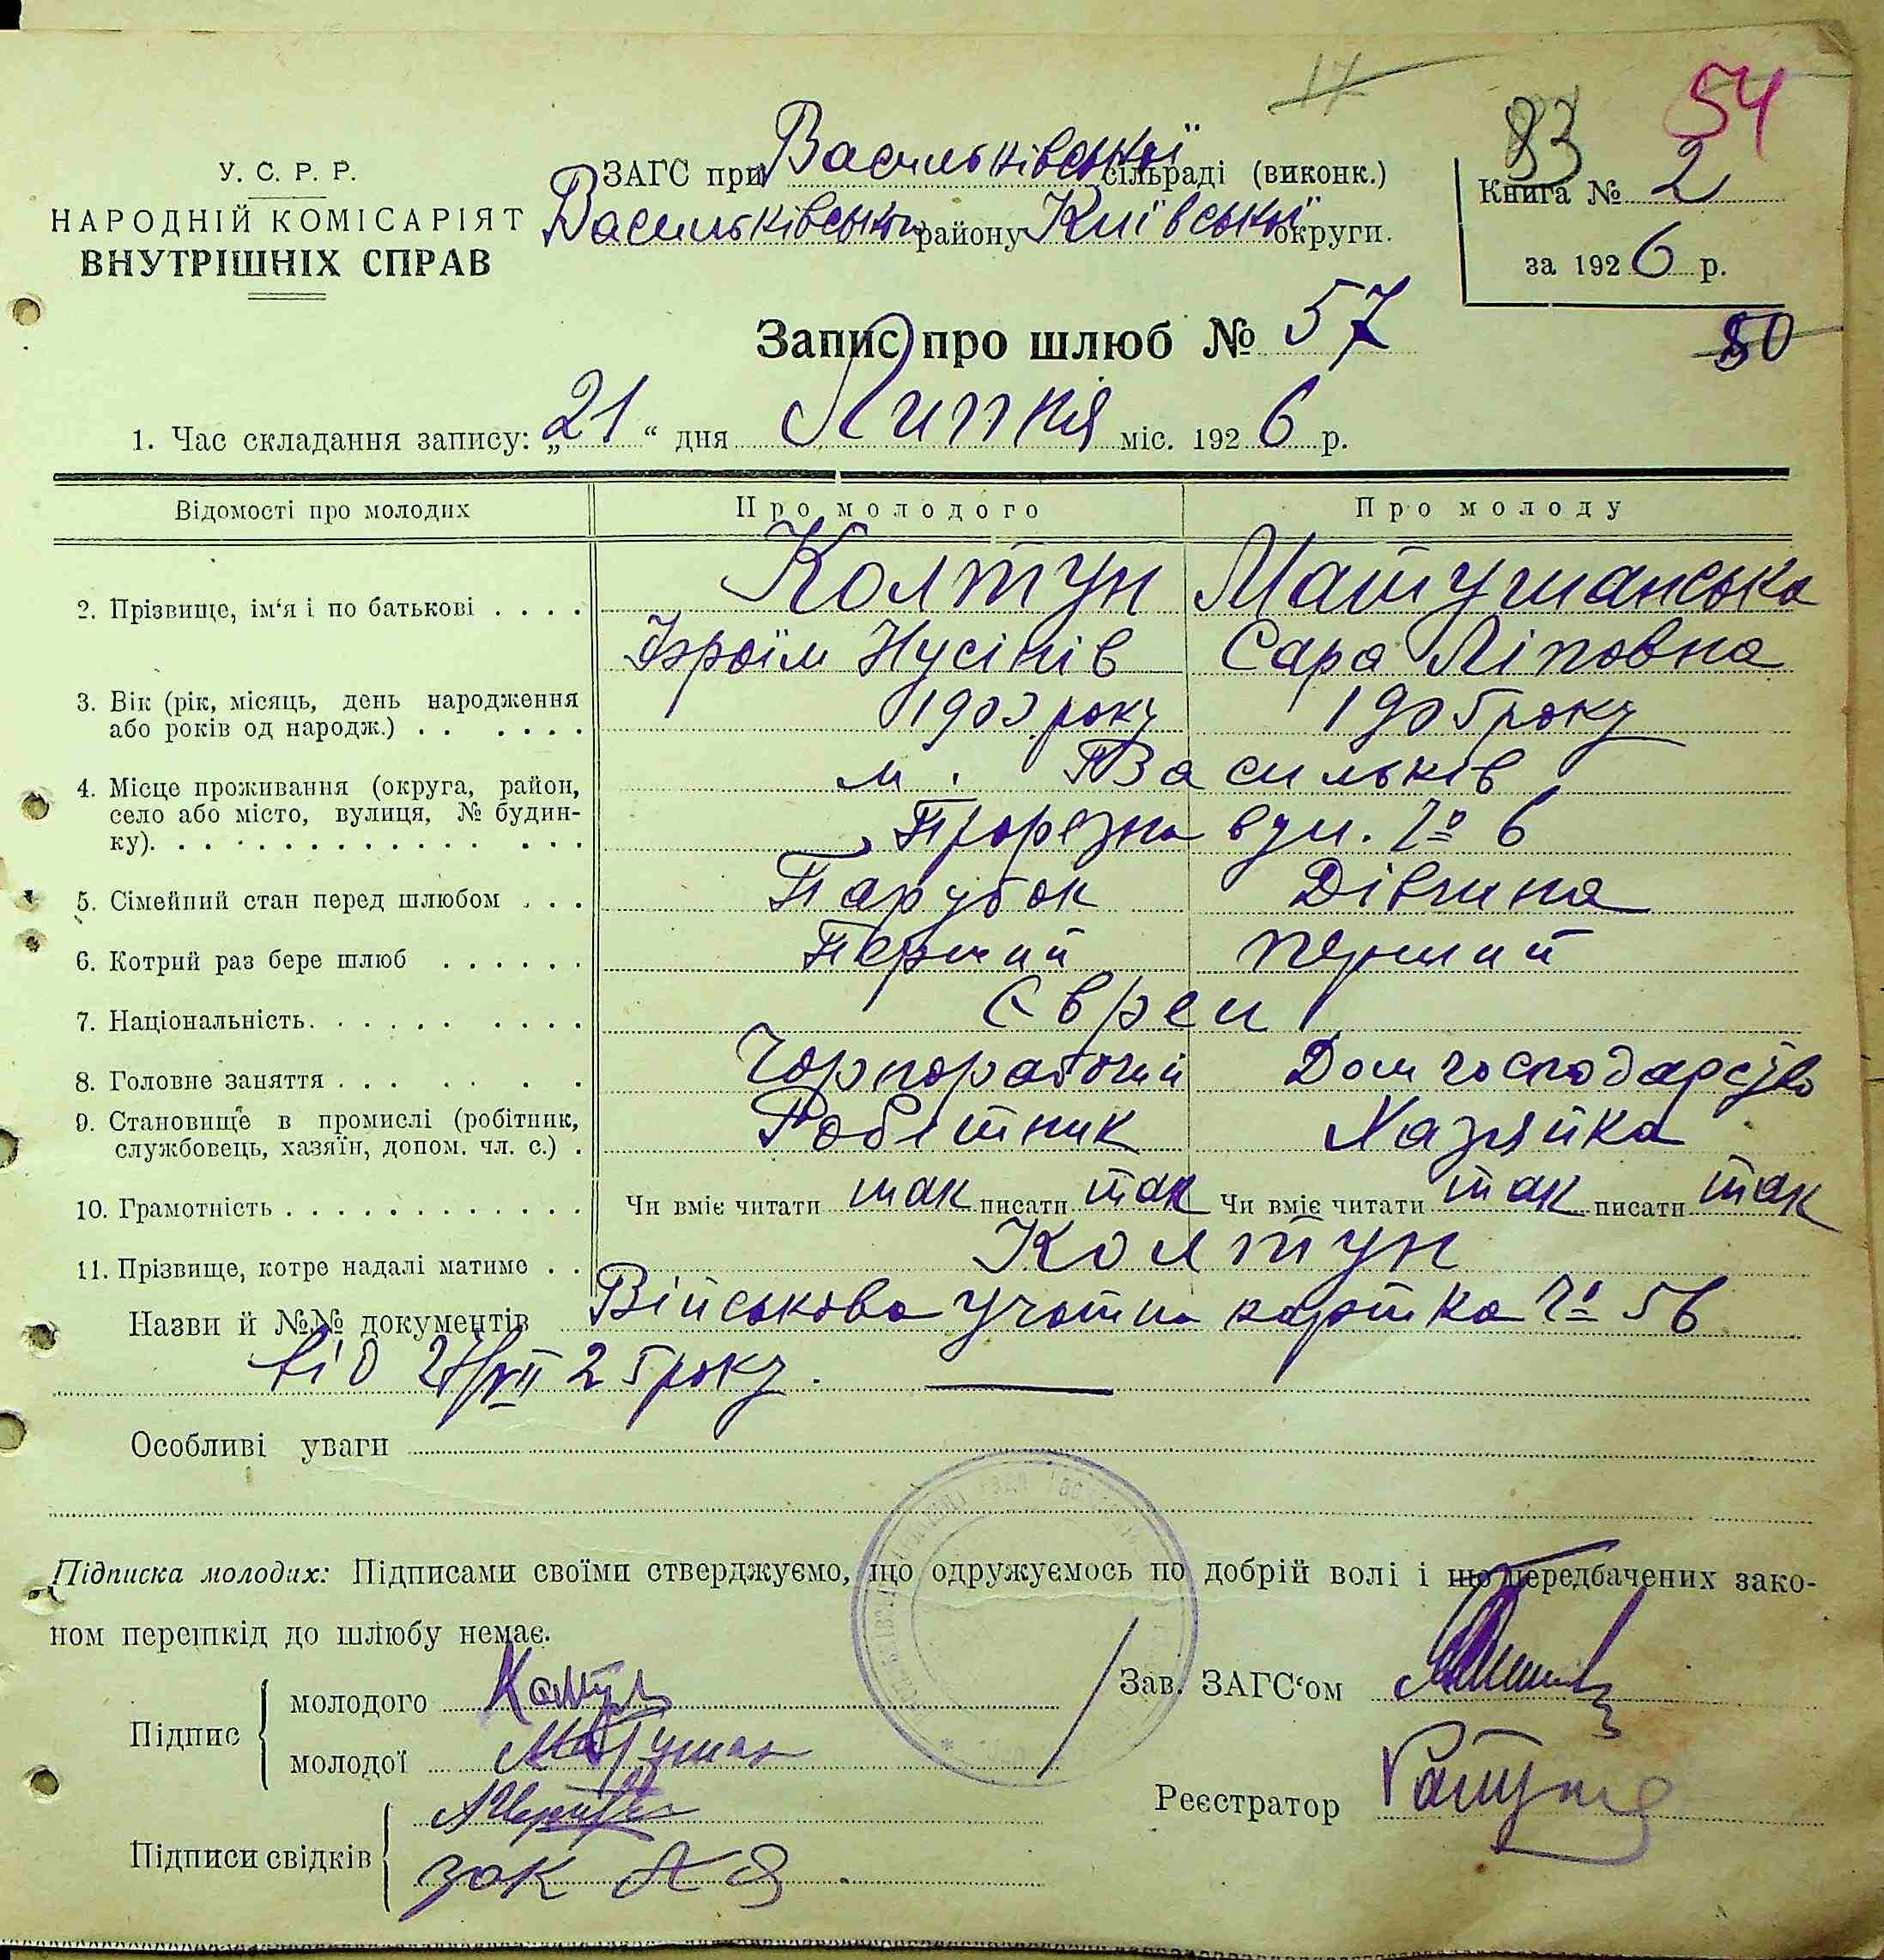 17
83 54
У. С. Р. Р.
НАРОДНІЙ КОМІСАРІЯТ
ВНУТРІШНІХ СПРАВ
ЗАГС при Васильківської сільраді (виконк.)
Васильківськ району Київської округи.
Книга № 2
за 1926 р.
Запис про шлюб № 57
50
1. Час складання запису: „21“ дня Липня міс. 1926 р.
Відомості про молодих Про молодого Про молоду
2. Прізвище, ім‘я і по батькові . . . . Колтун Матушанська
Ізроїм Нусінів Сара Ліповна
3. Вік (рік, місяць, день народження 1903 року 1905 року
або років од народж.) . . . . . .
4. Місце проживання (округа, район, м. Васильків
село або місто, вулиця, № будин-
ку). . . . . . . . . . . . . . . . Прорезна вул. № 6
5. Сімейний стан перед шлюбом . . . Парубок Дівчина
6. Котрий раз бере шлюб . . . . . . Перший перший
7. Національність. . . . . . . . . . Євреи
8. Головне заняття . . . . . . . Чорнорабочий Дом господарство
9. Становище в промислі (робітник, Робітник Хазяйка
службовець, хазяїн, допом. чл. с.) .
10. Грамотність . . . . . . . . . . . . . Чи вміє читати так писати так Чи вміє читати так писати так
11. Прізвище, котре надалі матиме . . Колтун
Назви й №№ документів Військова учотна картка № 56
від 27/VII 25 року.
Особливі уваги
Підписка молодих: Підписами своїми стверджуємо, що одружуємось по добрій волі і що передбачених зако-
ном перешкід до шлюбу немає.
Підпис
молодого Колтун
молодої Матушан
Зав. ЗАГС‘ом
Реєстратор
Підписи свідків
зак